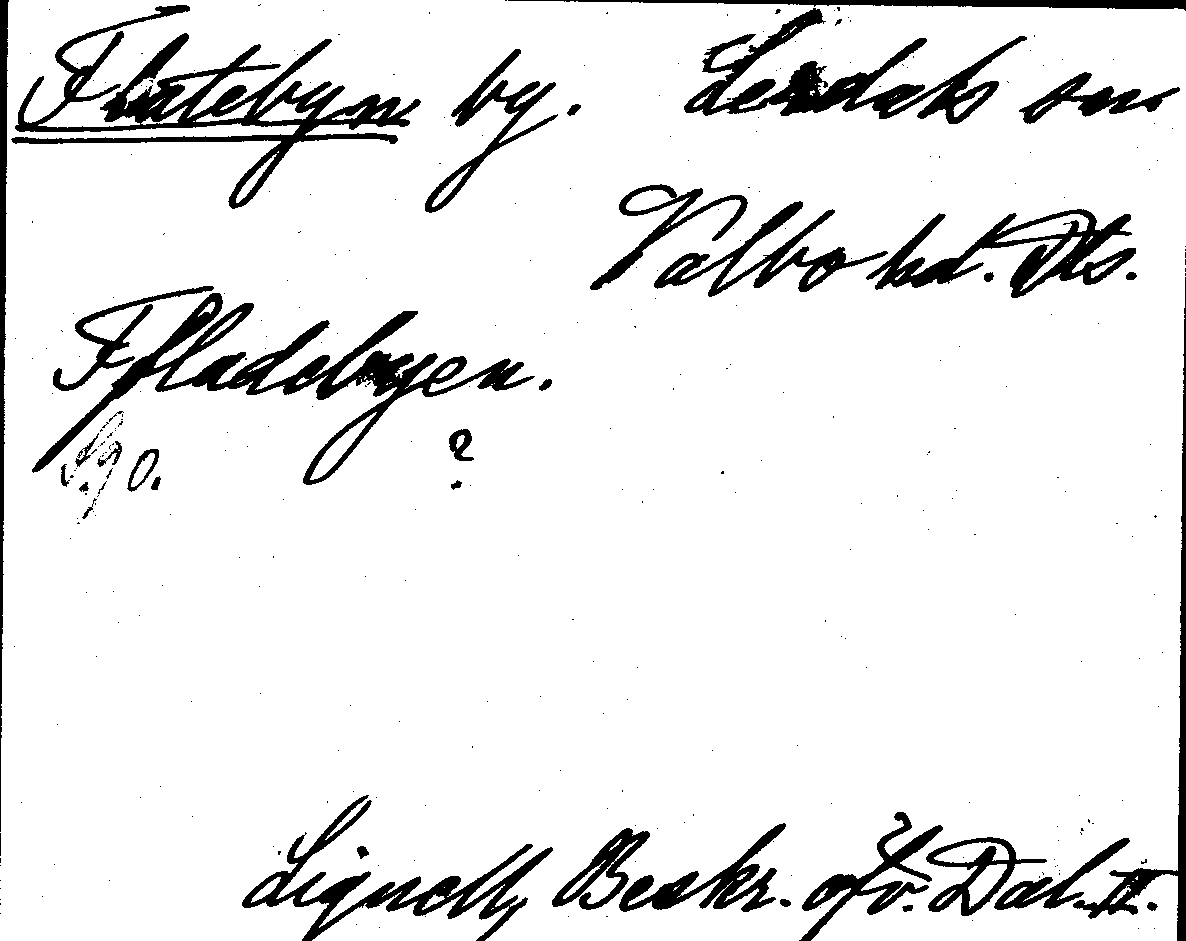 Flatebyn by. Lerdals sn.
Valbo hd. Dls.
Ffladebyen.
S. 90. ?
Lignell, Beskr. öfv. Dal. II.